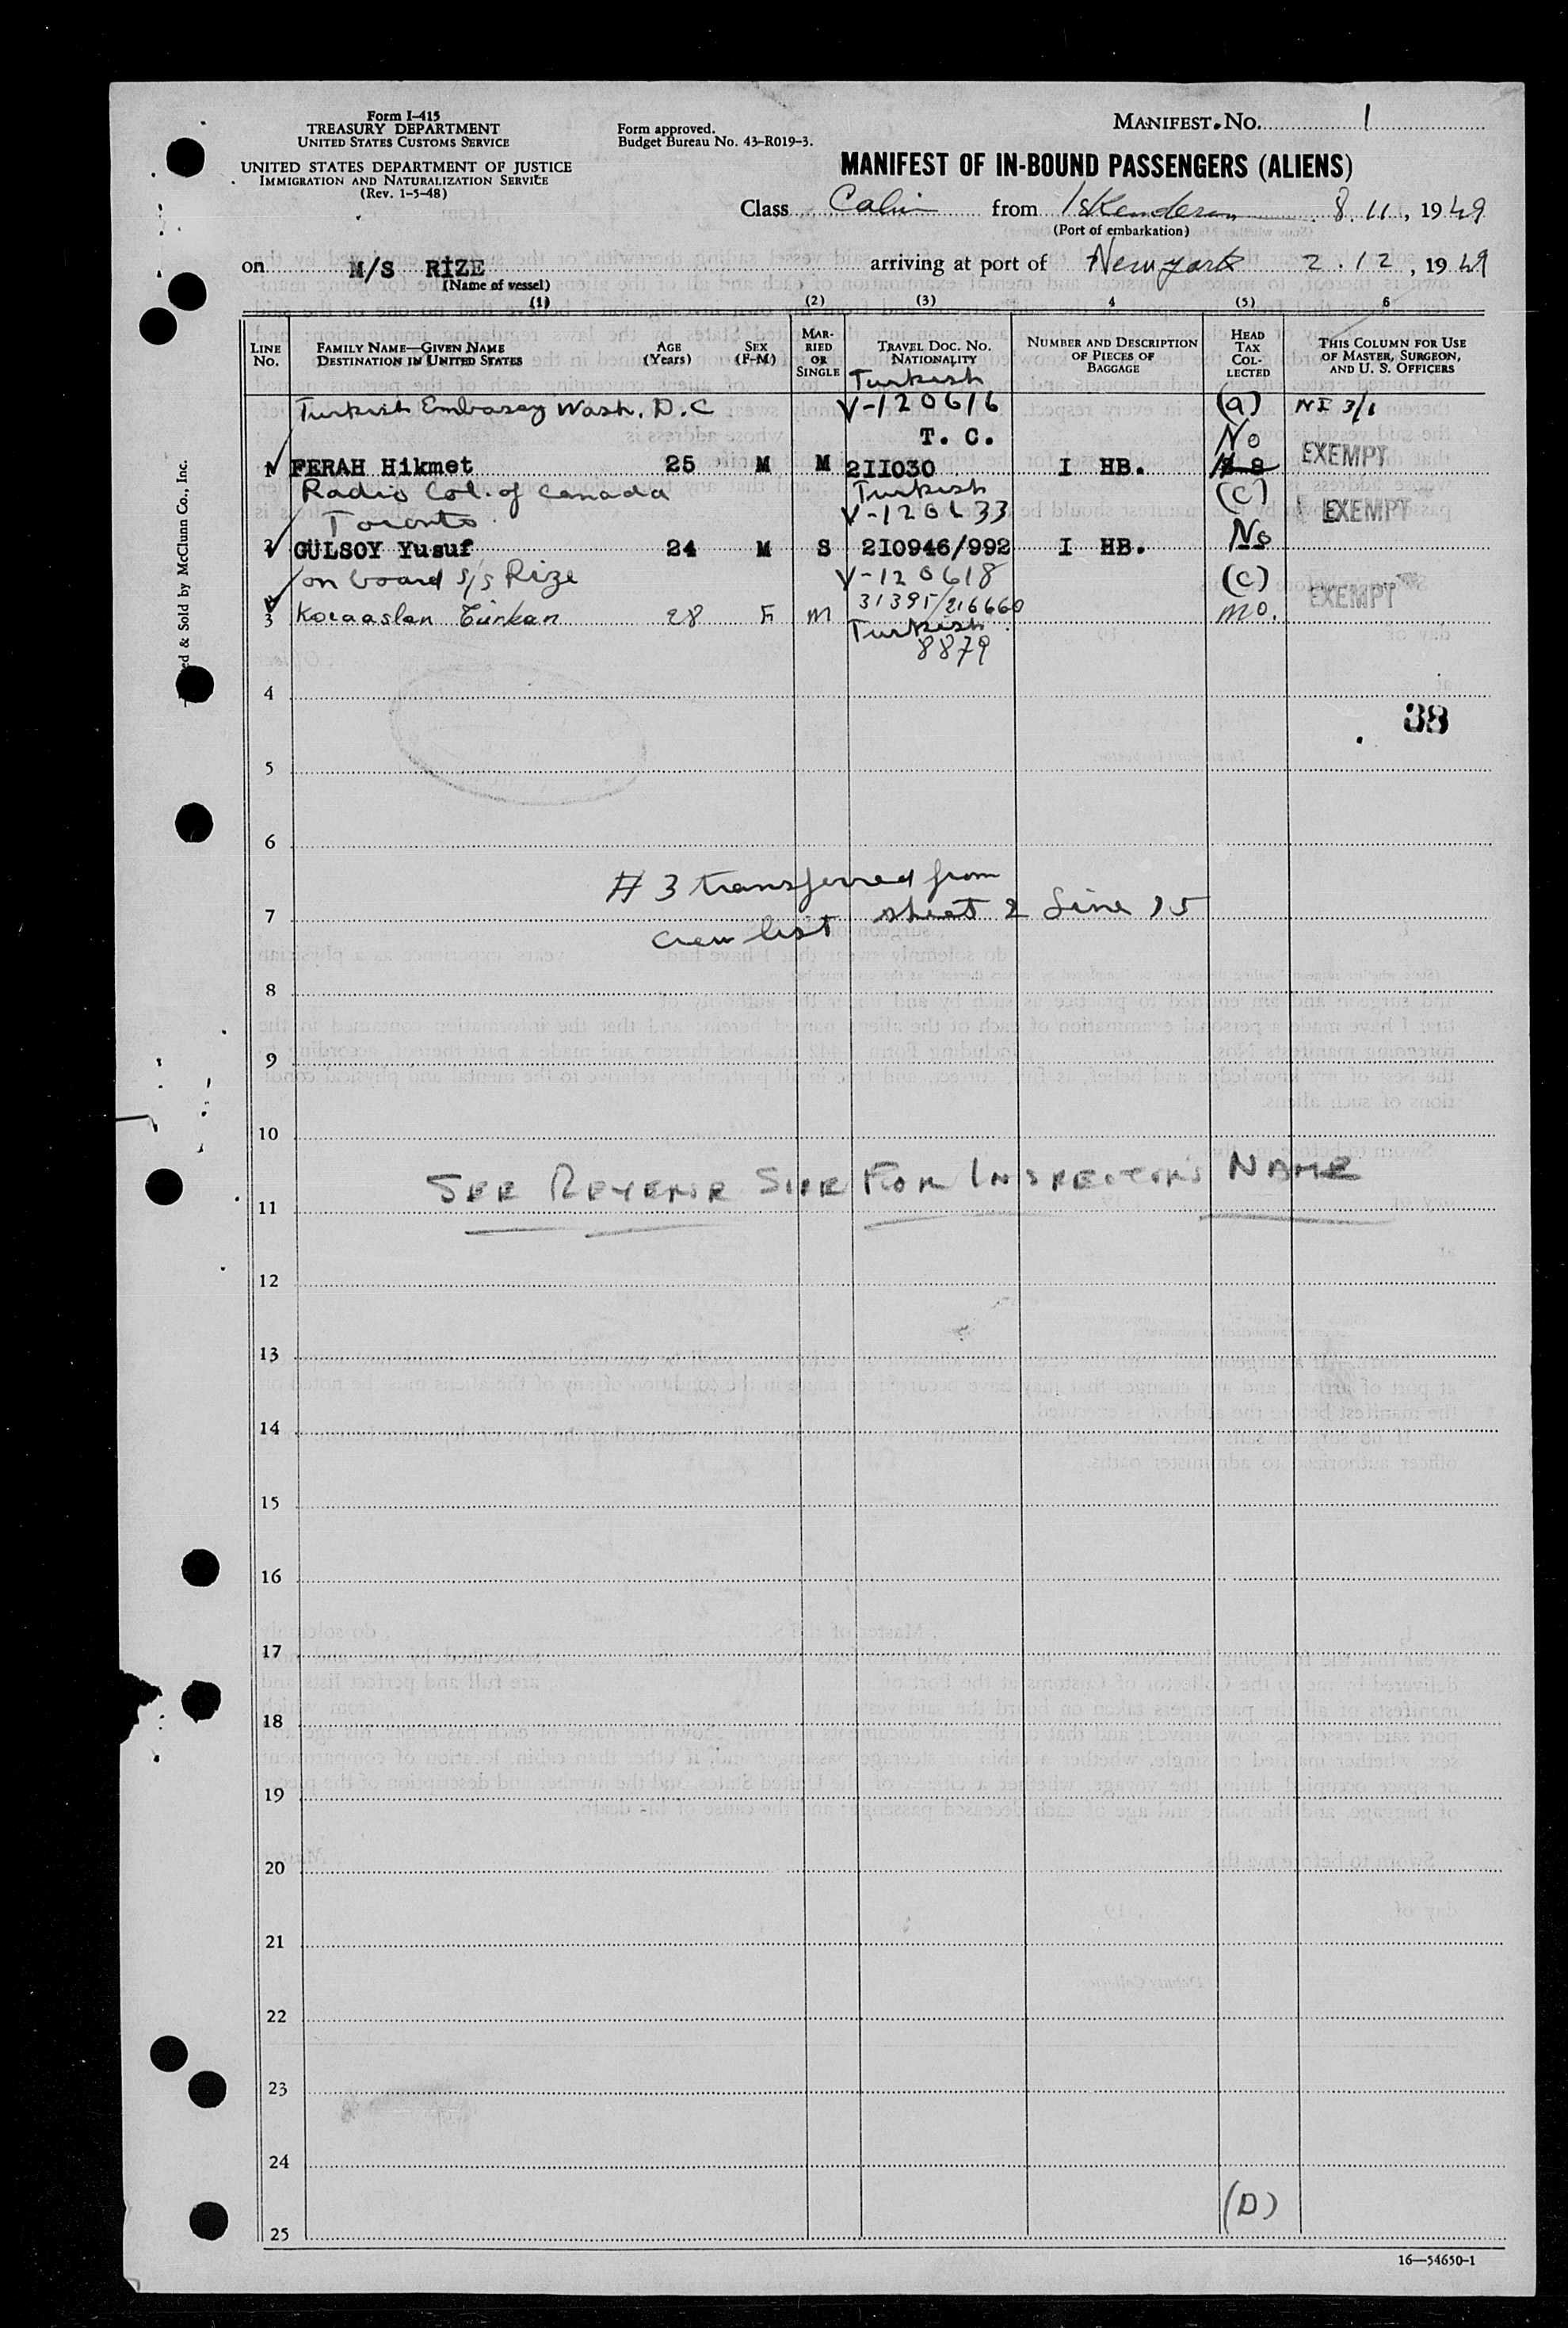 Form I-415
TREASURY DEPARTMENT
UNITED STATES CUSTOMS SERVICE
UNITED STATES DEPARTMENT OF JUSTICE
IMMIGRATION AND NATURALIZATION SERVICE
(Rev. 1-5-48)
Form approved.
Budget Bureau No. 43-R019-3.
MANIFEST. NO. 1
MANIFEST OF IN-BOUND PASSENGERS (ALIENS)
Class Cabin from Iskenderun 8.11, 1949
(Port of embarkation)
on M/S RİZE arriving at port of New york 2.12, 1949
(Name of vessel)
(1) (2) (3) 4 (5) 6
LINE NO. FAMILY NAME—GIVEN NAME DESTINATION IN UNITED STATES AGE (Years) SEX (F-M) MARRIED OR SINGLE TRAVEL DOC. NO. NATIONALITY NUMBER AND DESCRIPTION OF PIECES OF BAGGAGE HEAD TAX COLLECTED THIS COLUMN FOR USE OF MASTER, SURGEON, AND U. S. OFFICERS
Turkish
Turkish Embassy Wash. D.C V-120616 (a) NI 3/1
T. C. No
1 FERAH Hikmet 25 M M 2II030 I HB. EXEMPT
Radio Col. of Canada Turkish (C)
Toronto. EXEMPT
2 GÜLSOY Yusuf 24 M S 2I0946/992 I HB. No
on board s/s Rize V-120618 (C)
3 Kocaaslan Türkan 28 F M 31395/216660 no. EXEMPT
Turkish
8879
4
38
5
6
# 3 transferred from
7 crew list sheet 2 Line 15
8
9
10
SEE REVERSE SIDE FOR INSPECTORS NAME
11
12
13
14
15
16
17
18
19
20
21
22
23
24
(D)
25
16—54650-1
ed & Sold by McClunn Co., Inc.